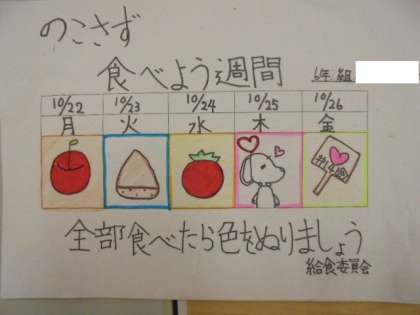 のこさず
食べよう週間
6年 組
10/22 10/23 10/24 10/25 10/26
月 火 水 木 金
全部食べたら色をぬりましょう
給食委員会